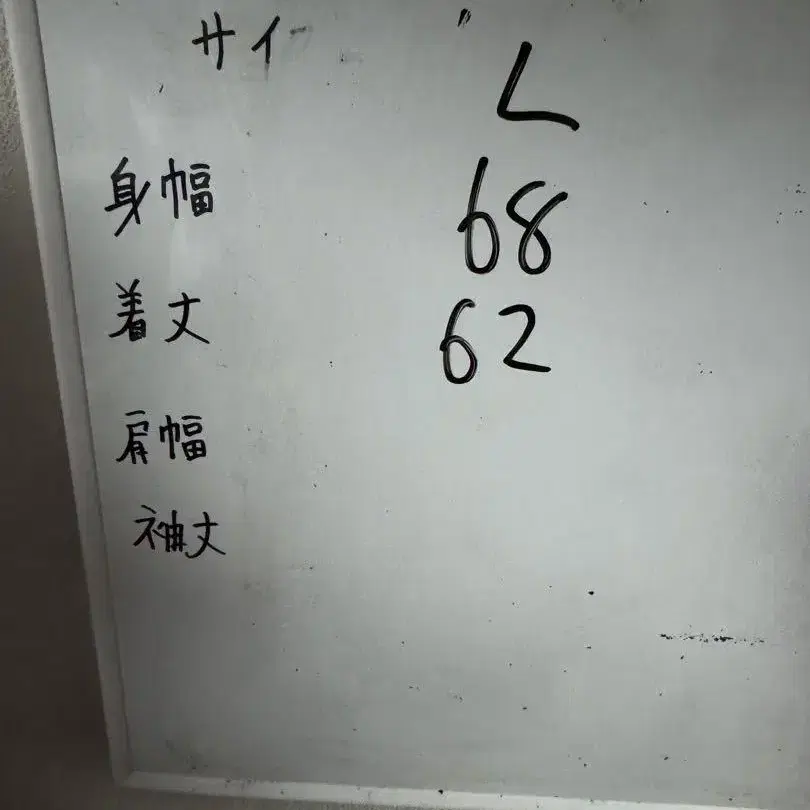 サイ L
身幅 68
着丈 62
肩幅
袖丈